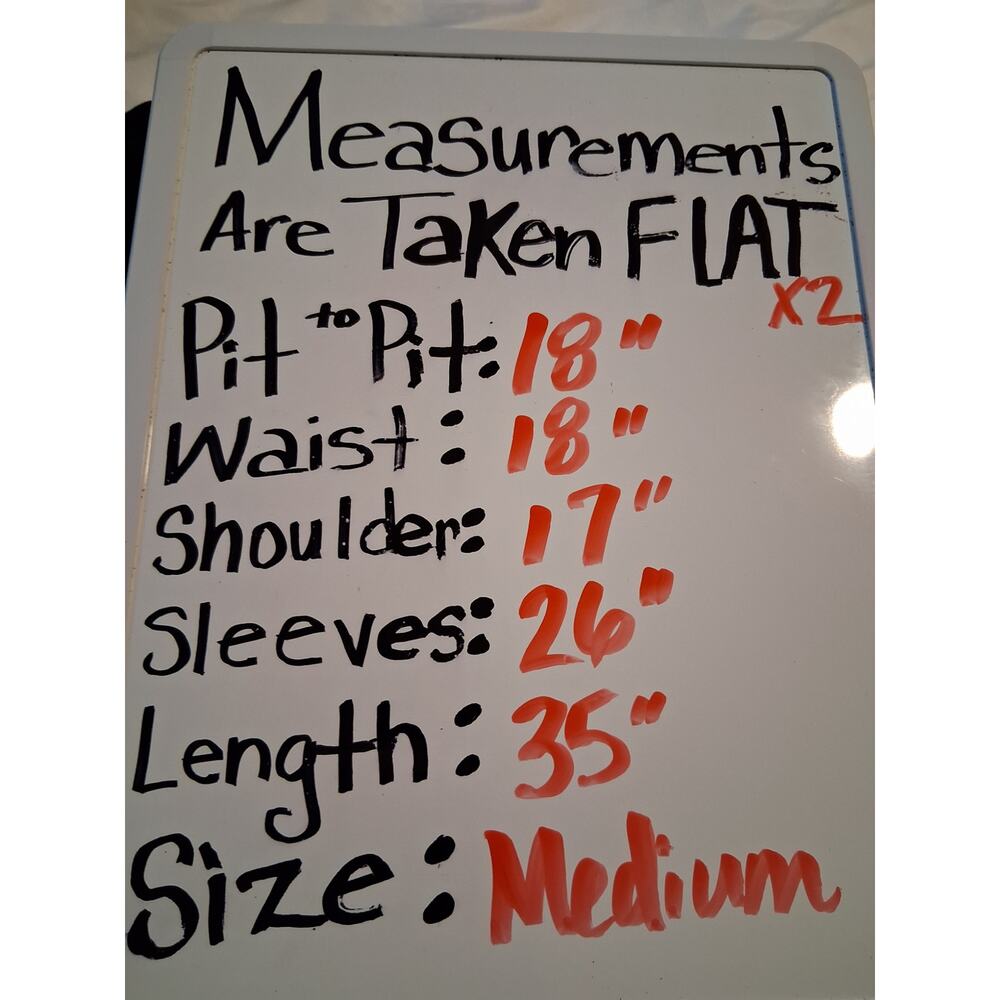 Measurements
Are Taken FLAT
x2
Pit to Pit: 18"
Waist: 18"
Shoulder: 17"
Sleeves: 26"
Length: 35"
Size: Medium